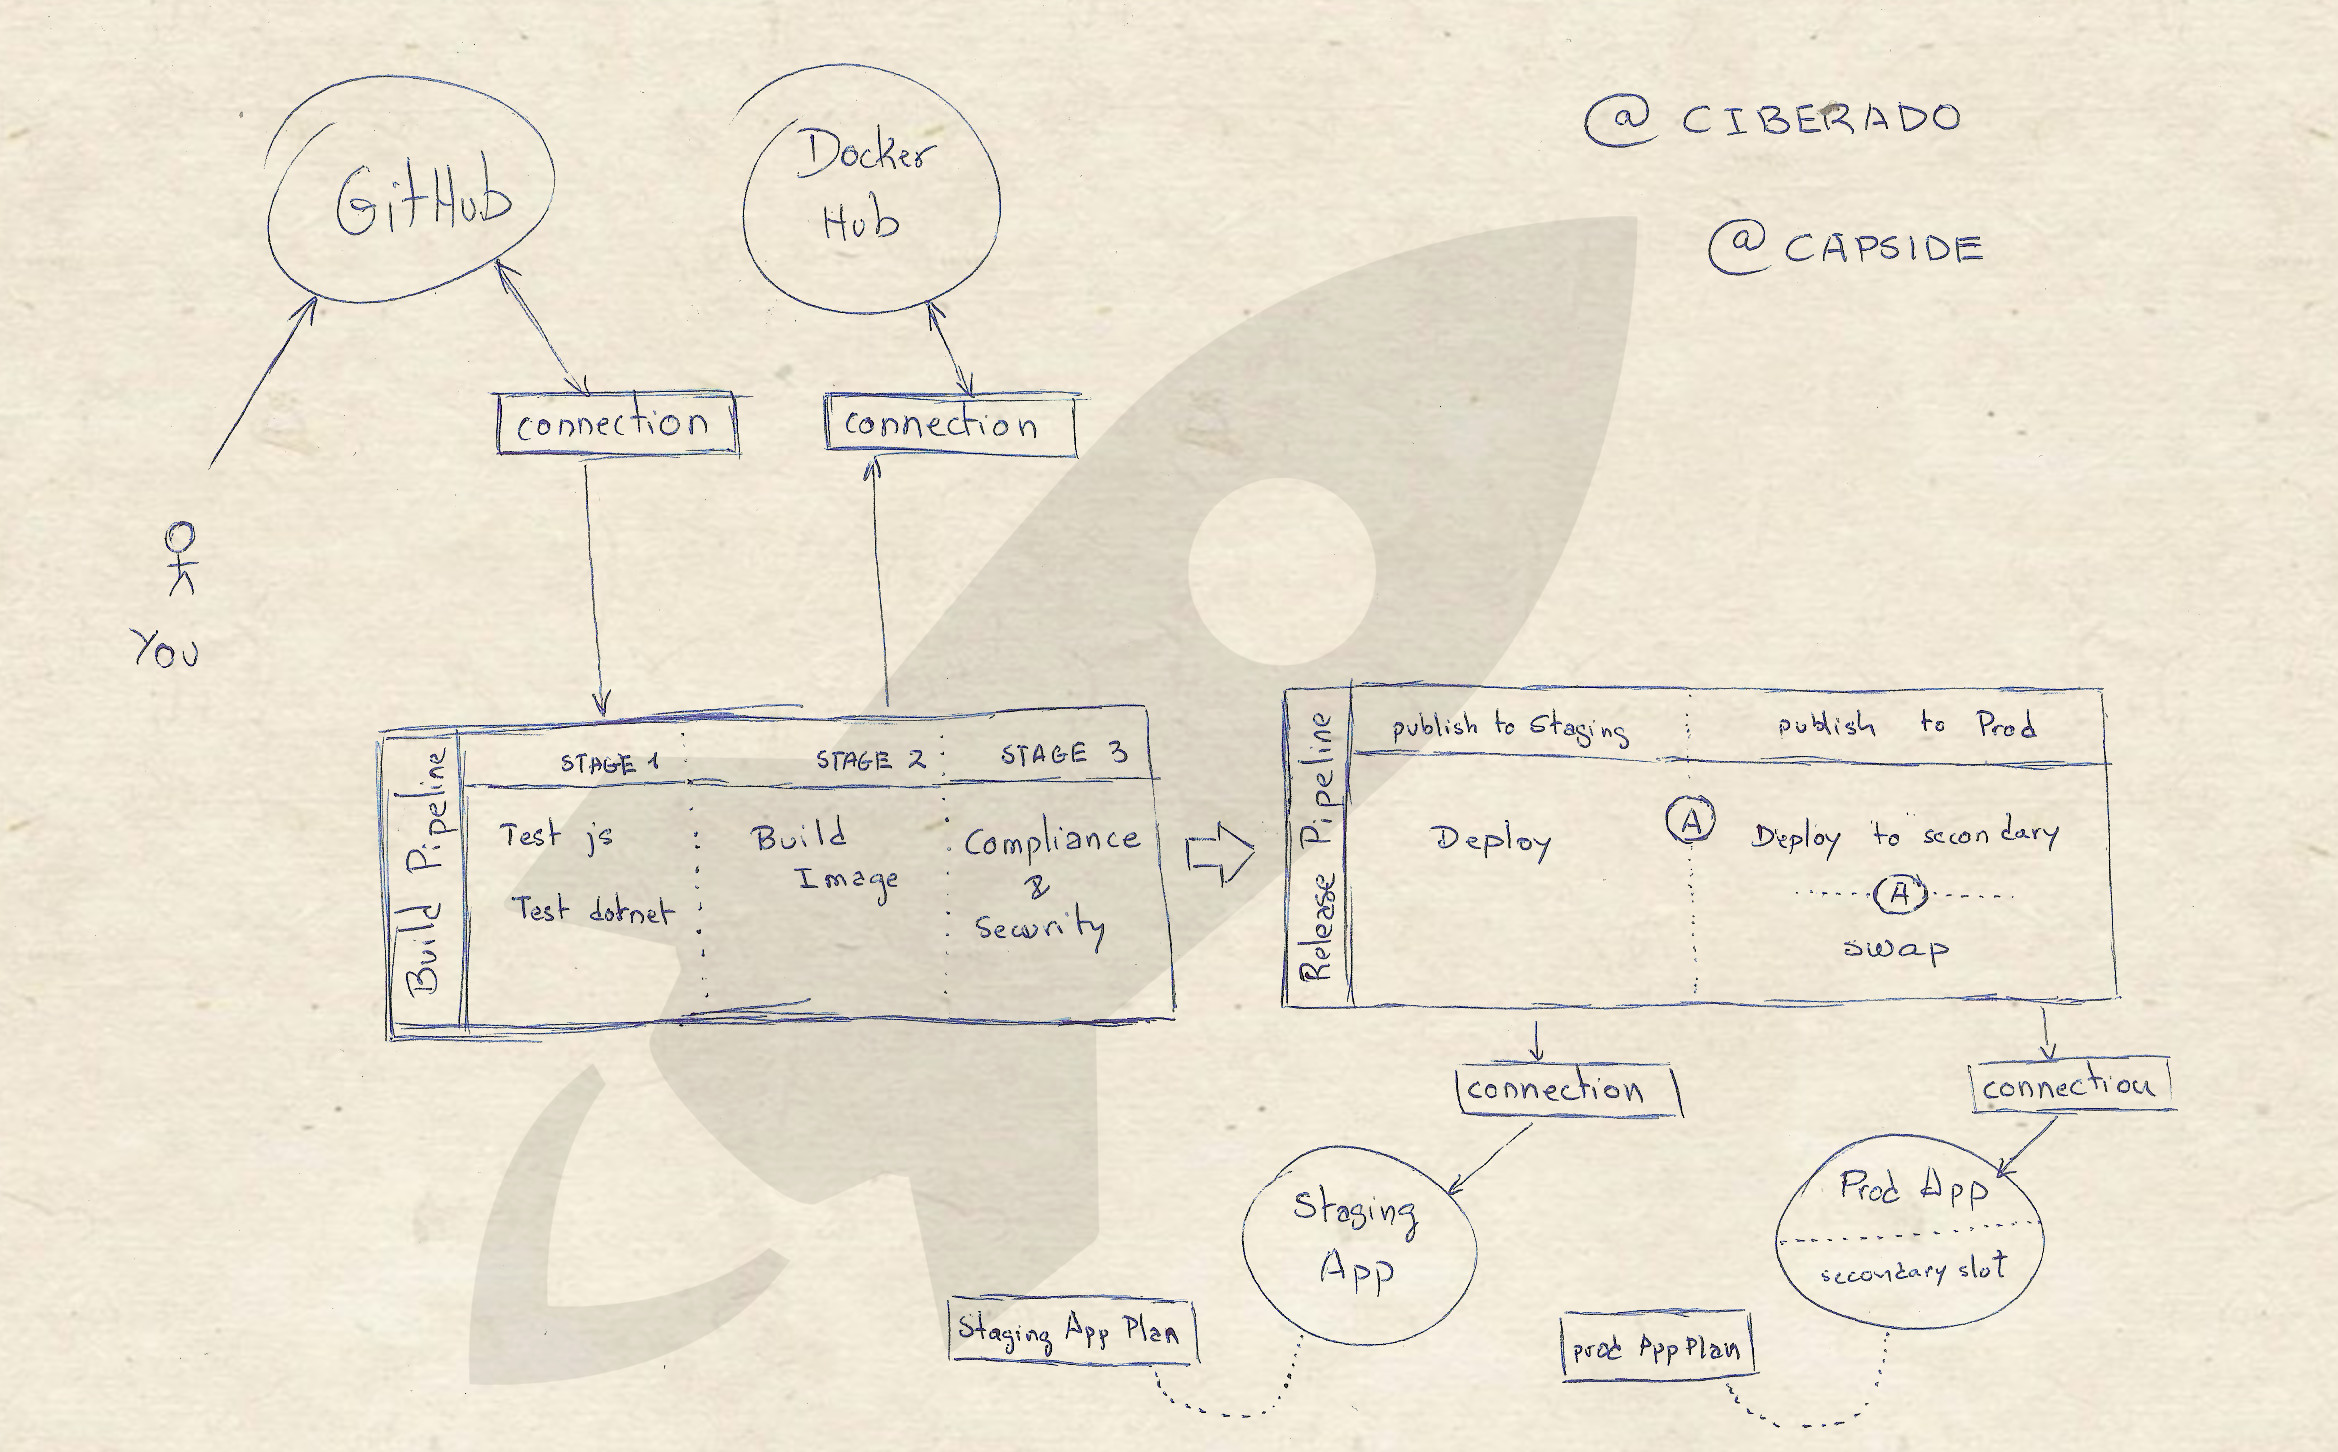 GitHub
Docker
Hub
@ CIBERADO
@ CAPSIDE
connection
connection
You
Build Pipeline
STAGE 1
STAGE 2
STAGE 3
Test js
Test dotnet
Build
Image
Compliance
&
Security
Release Pipeline
publish to Staging
publish to Prod
Deploy
A
Deploy to secondary
A
swap
connection
connection
Staging
App
Prod App
secondary slot
Staging App Plan
prod App Plan